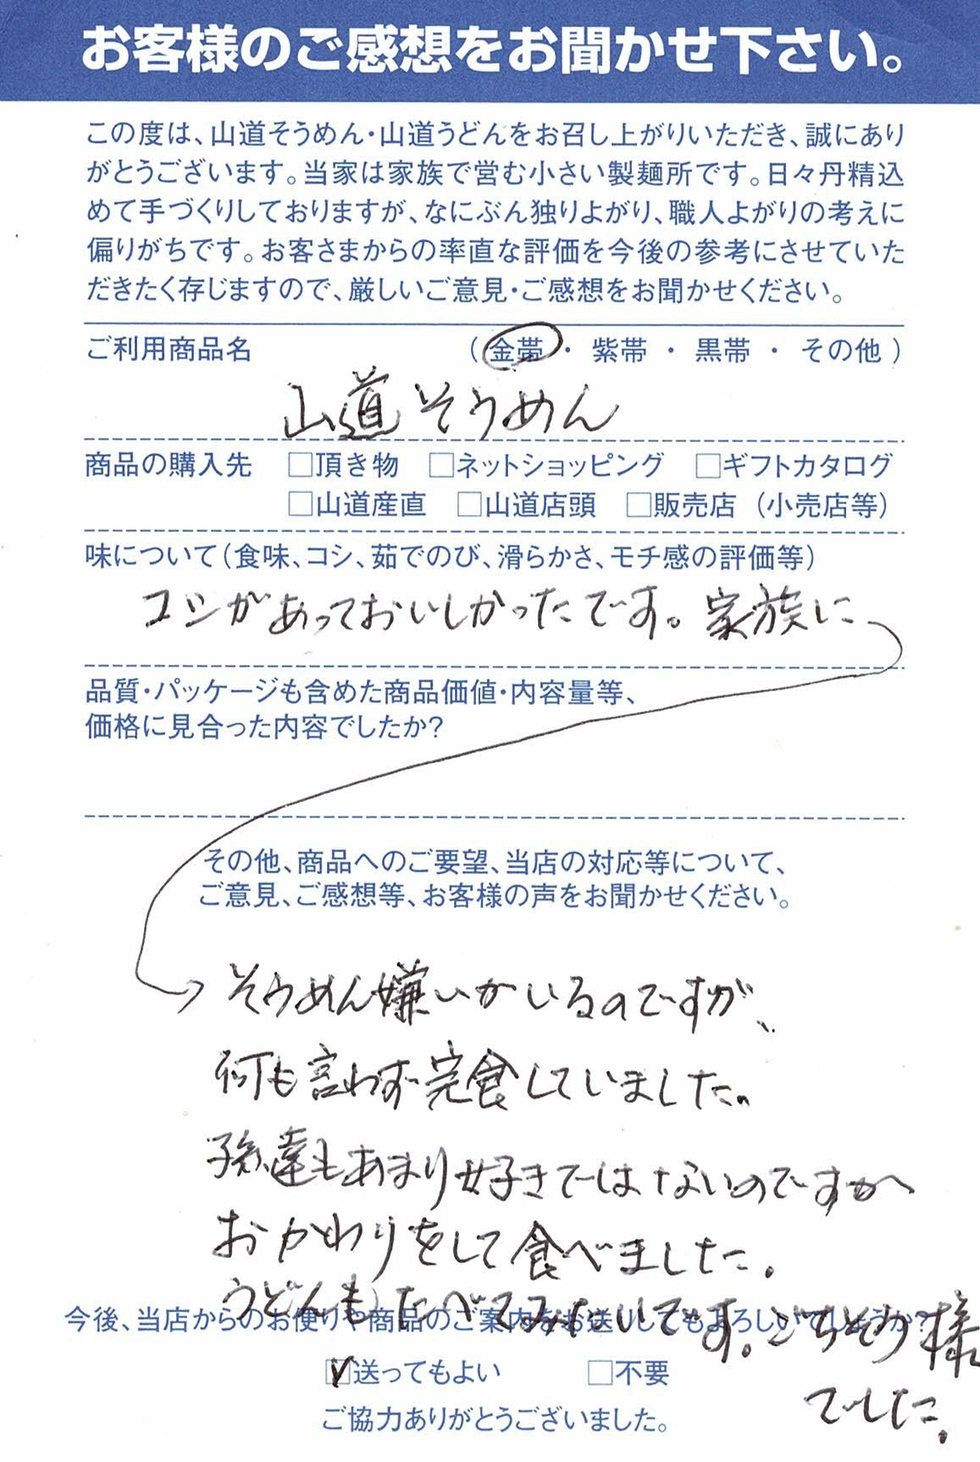 お客様のご感想をお聞かせ下さい。
この度は、山道そうめん・山道うどんをお召し上がりいただき、誠にあり
がとうございます。当家は家族で営む小さい製麺所です。日々丹精込
めて手づくりしておりますが、なにぶん独りよがり、職人よがりの考えに
偏りがちです。お客さまからの率直な評価を今後の参考にさせていた
だきたく存じますので、厳しいご意見・ご感想をお聞かせください。
ご利用商品名 （ 金帯 ・ 紫帯 ・ 黒帯 ・ その他 ）
山道そうめん
商品の購入先 □頂き物 □ネットショッピング □ギフトカタログ
□山道産直 □山道店頭 □販売店（小売店等）
味について（食味、コシ、茹でのび、滑らかさ、モチ感の評価等）
コシがあっておいしかったです。家族に
品質・パッケージも含めた商品価値・内容量等、
価格に見合った内容でしたか?
その他、商品へのご要望、当店の対応等について、
ご意見、ご感想等、お客様の声をお聞かせください。
そうめん嫌いがいるのですが、
何も言わず完食していました。
孫達もあまり好きではないのですが
おかわりをして食べました。
うどんもたべてみたいです。ごちそう様
でした。
今後、当店からのお便りや商品のご案内をお送りしてもよろしいでしょうか?
☑送ってもよい □不要
ご協力ありがとうございました。